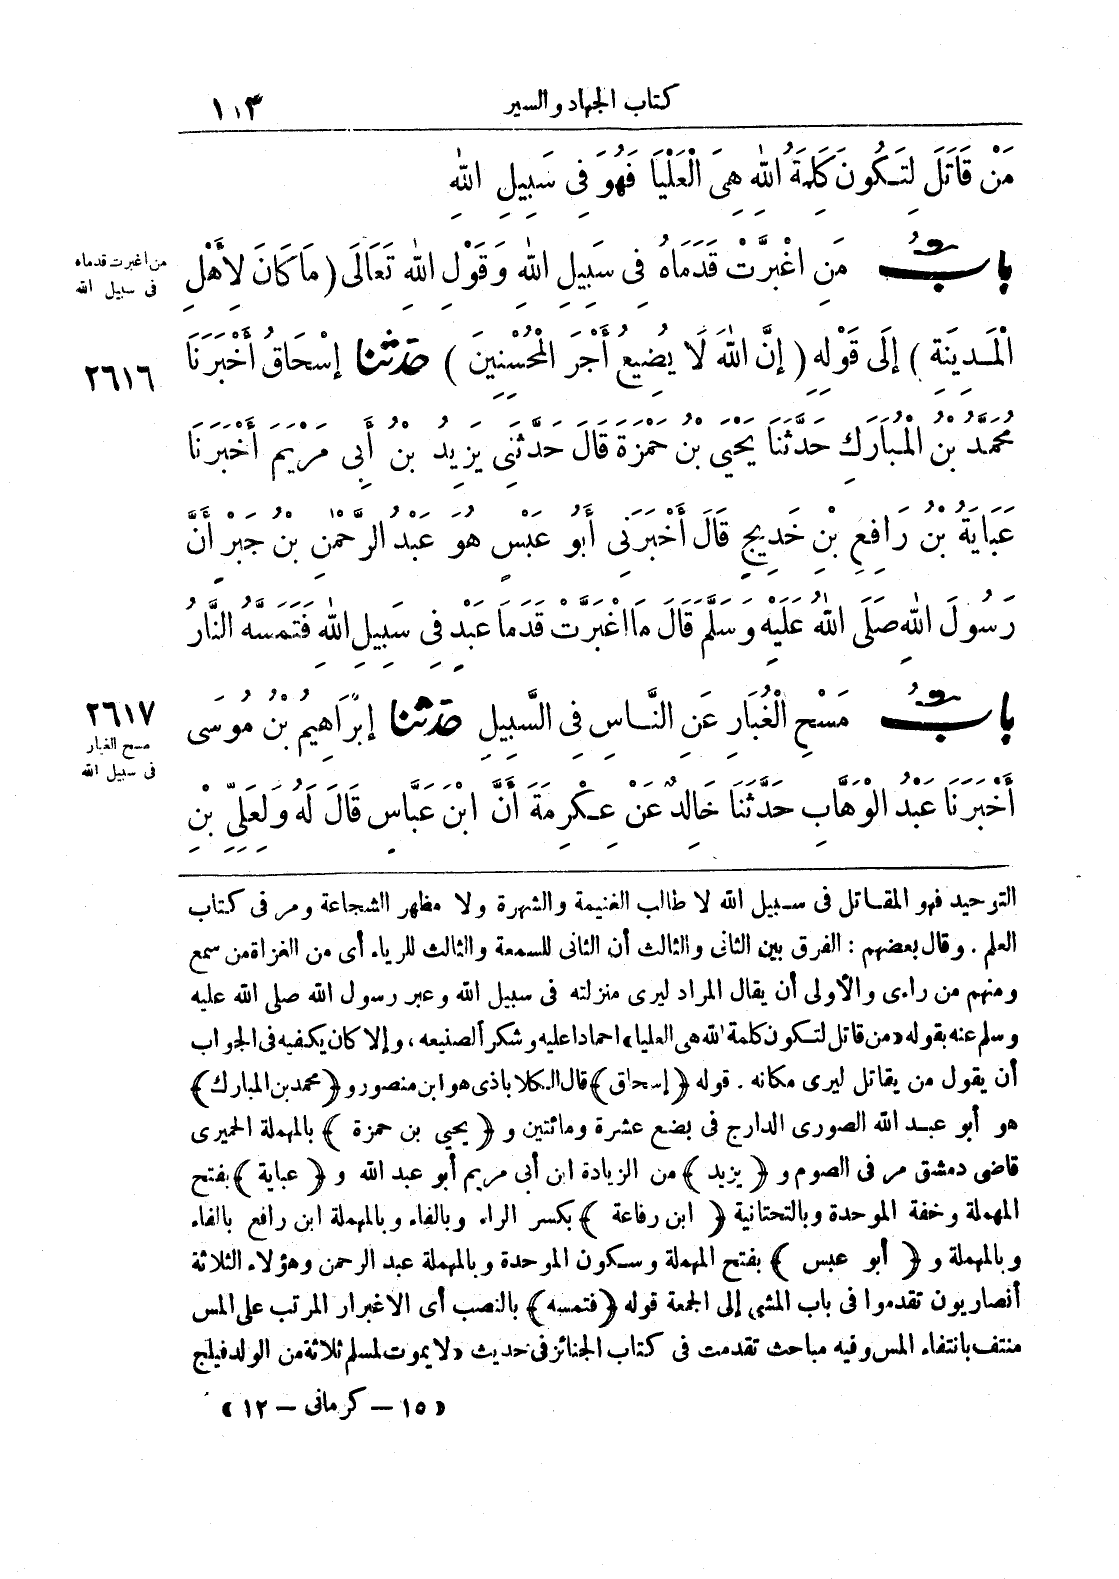 كتاب الجهاد والسير
١١٣
مَنْ قَاتَلَ لِتَكُونَ كَلِمَةُ اللهِ هِيَ الْعُلْيَا فَهُوَ فِى سَبِيلِ اللهِ
بابُ مَنِ اغْبَرَّتْ قَدَمَاهُ فِى سَبِيلِ اللهِ وَقَوْلِ اللهِ تَعَالَى ( مَا كَانَ لِأَهْلِ
من اغبرت قدماه
فى سبيل الله
الْمَدِينَةِ ) إِلَى قَوْلِهِ ( إِنَّ اللهَ لَا يُضِيعُ أَجْرَ الْمُحْسِنِينَ ) حدثنا إِسْحَاقُ أَخْبَرَنَا
٢٦١٦
مُحَمَّدُ بْنُ الْمُبَارَكِ حَدَّثَنَا يَحْيَى بْنُ حَمْزَةَ قَالَ حَدَّثَنِى يَزِيدُ بْنُ أَبِى مَرْيَمَ أَخْبَرَنَا
عَبَايَةُ بْنُ رَافِعِ بْنِ خَدِيجٍ قَالَ أَخْبَرَنِى أَبُو عَبْسٍ هُوَ عَبْدُ الرَّحْمٰنِ بْنُ جَبْرٍ أَنَّ
رَسُولَ اللهِ صَلَّى اللهُ عَلَيْهِ وَسَلَّمَ قَالَ مَا اغْبَرَّتْ قَدَمَا عَبْدٍ فِى سَبِيلِ اللهِ فَتَمَسَّهُ النَّارُ
بابُ مَسْحِ الْغُبَارِ عَنِ النَّاسِ فِى السَّبِيلِ حدثنا إِبْرَاهِيمُ بْنُ مُوسَى
٢٦١٧
مسح الغبار
فى سبيل الله
أَخْبَرَنَا عَبْدُ الْوَهَّابِ حَدَّثَنَا خَالِدٌ عَنْ عِكْرِمَةَ أَنَّ ابْنَ عَبَّاسٍ قَالَ لَهُ وَلِعَلِىِّ بْنِ
التوحيد فهو المقاتل فى سبيل الله لا طالب الغنيمة والشهرة ولا مظهر الشجاعة ومر فى كتاب
العلم . وقال بعضهم : الفرق بين الثانى والثالث أن الثانى للسمعة والثالث للرياء أى من الغزاة من سمع
ومنهم من راءى والأولى أن يقال المراد ليرى منزلته فى سبيل الله وعبر رسول الله صلى الله عليه
وسلم عنه بقوله «من قاتل لتكون كلمة الله هى العليا» احمادا عليه وشكرا لصنيعه ، وإلا كان يكفيه فى الجواب
أن يقول من يقاتل ليرى مكانه . قوله ﴿ إسحاق ﴾ قال الكلاباذى هو ابن منصور و﴿ محمد بن المبارك ﴾
هو أبو عبد الله الصورى الدارج فى بضع عشرة ومائتين و ﴿ يحيى بن حمزة ﴾ بالمهملة الحميرى
قاضى دمشق مر فى الصوم و ﴿ يزيد ﴾ من الزيادة ابن أبى مريم أبو عبد الله و ﴿ عباية ﴾ بفتح
المهملة وخفة الموحدة وبالتحتانية ﴿ ابن رفاعة ﴾ بكسر الراء وبالفاء وبالمهملة ابن رافع بالفاء
وبالمهملة و ﴿ أبو عبس ﴾ بفتح المهملة وسكون الموحدة وبالمهملة عبد الرحمن وهؤلاء الثلاثة
أنصاريون تقدموا فى باب المشى إلى الجمعة قوله ﴿ فتمسه ﴾ بالنصب أى الاغبرار المرتب على المس
منتف بانتفاء المس وفيه مباحث تقدمت فى كتاب الجنائز فى حديث «لا يموت لمسلم ثلاثة من الولد فيلج
«١٥ – كرمانى – ١٢»